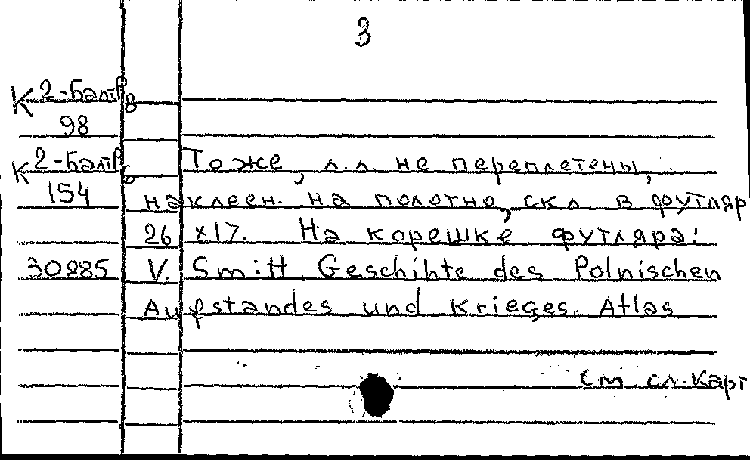 3
К 2-Балт/8
98
К 2-Балт/8 Тоже, л.л не переплетены,
154 наклеен. на полотно, скл. в футляр
26 x 17. На корешке футляра:
30285 V. Smitt Geschihte des Polnischen
Aufstandes und Krieges. Atlas
См сл. карт